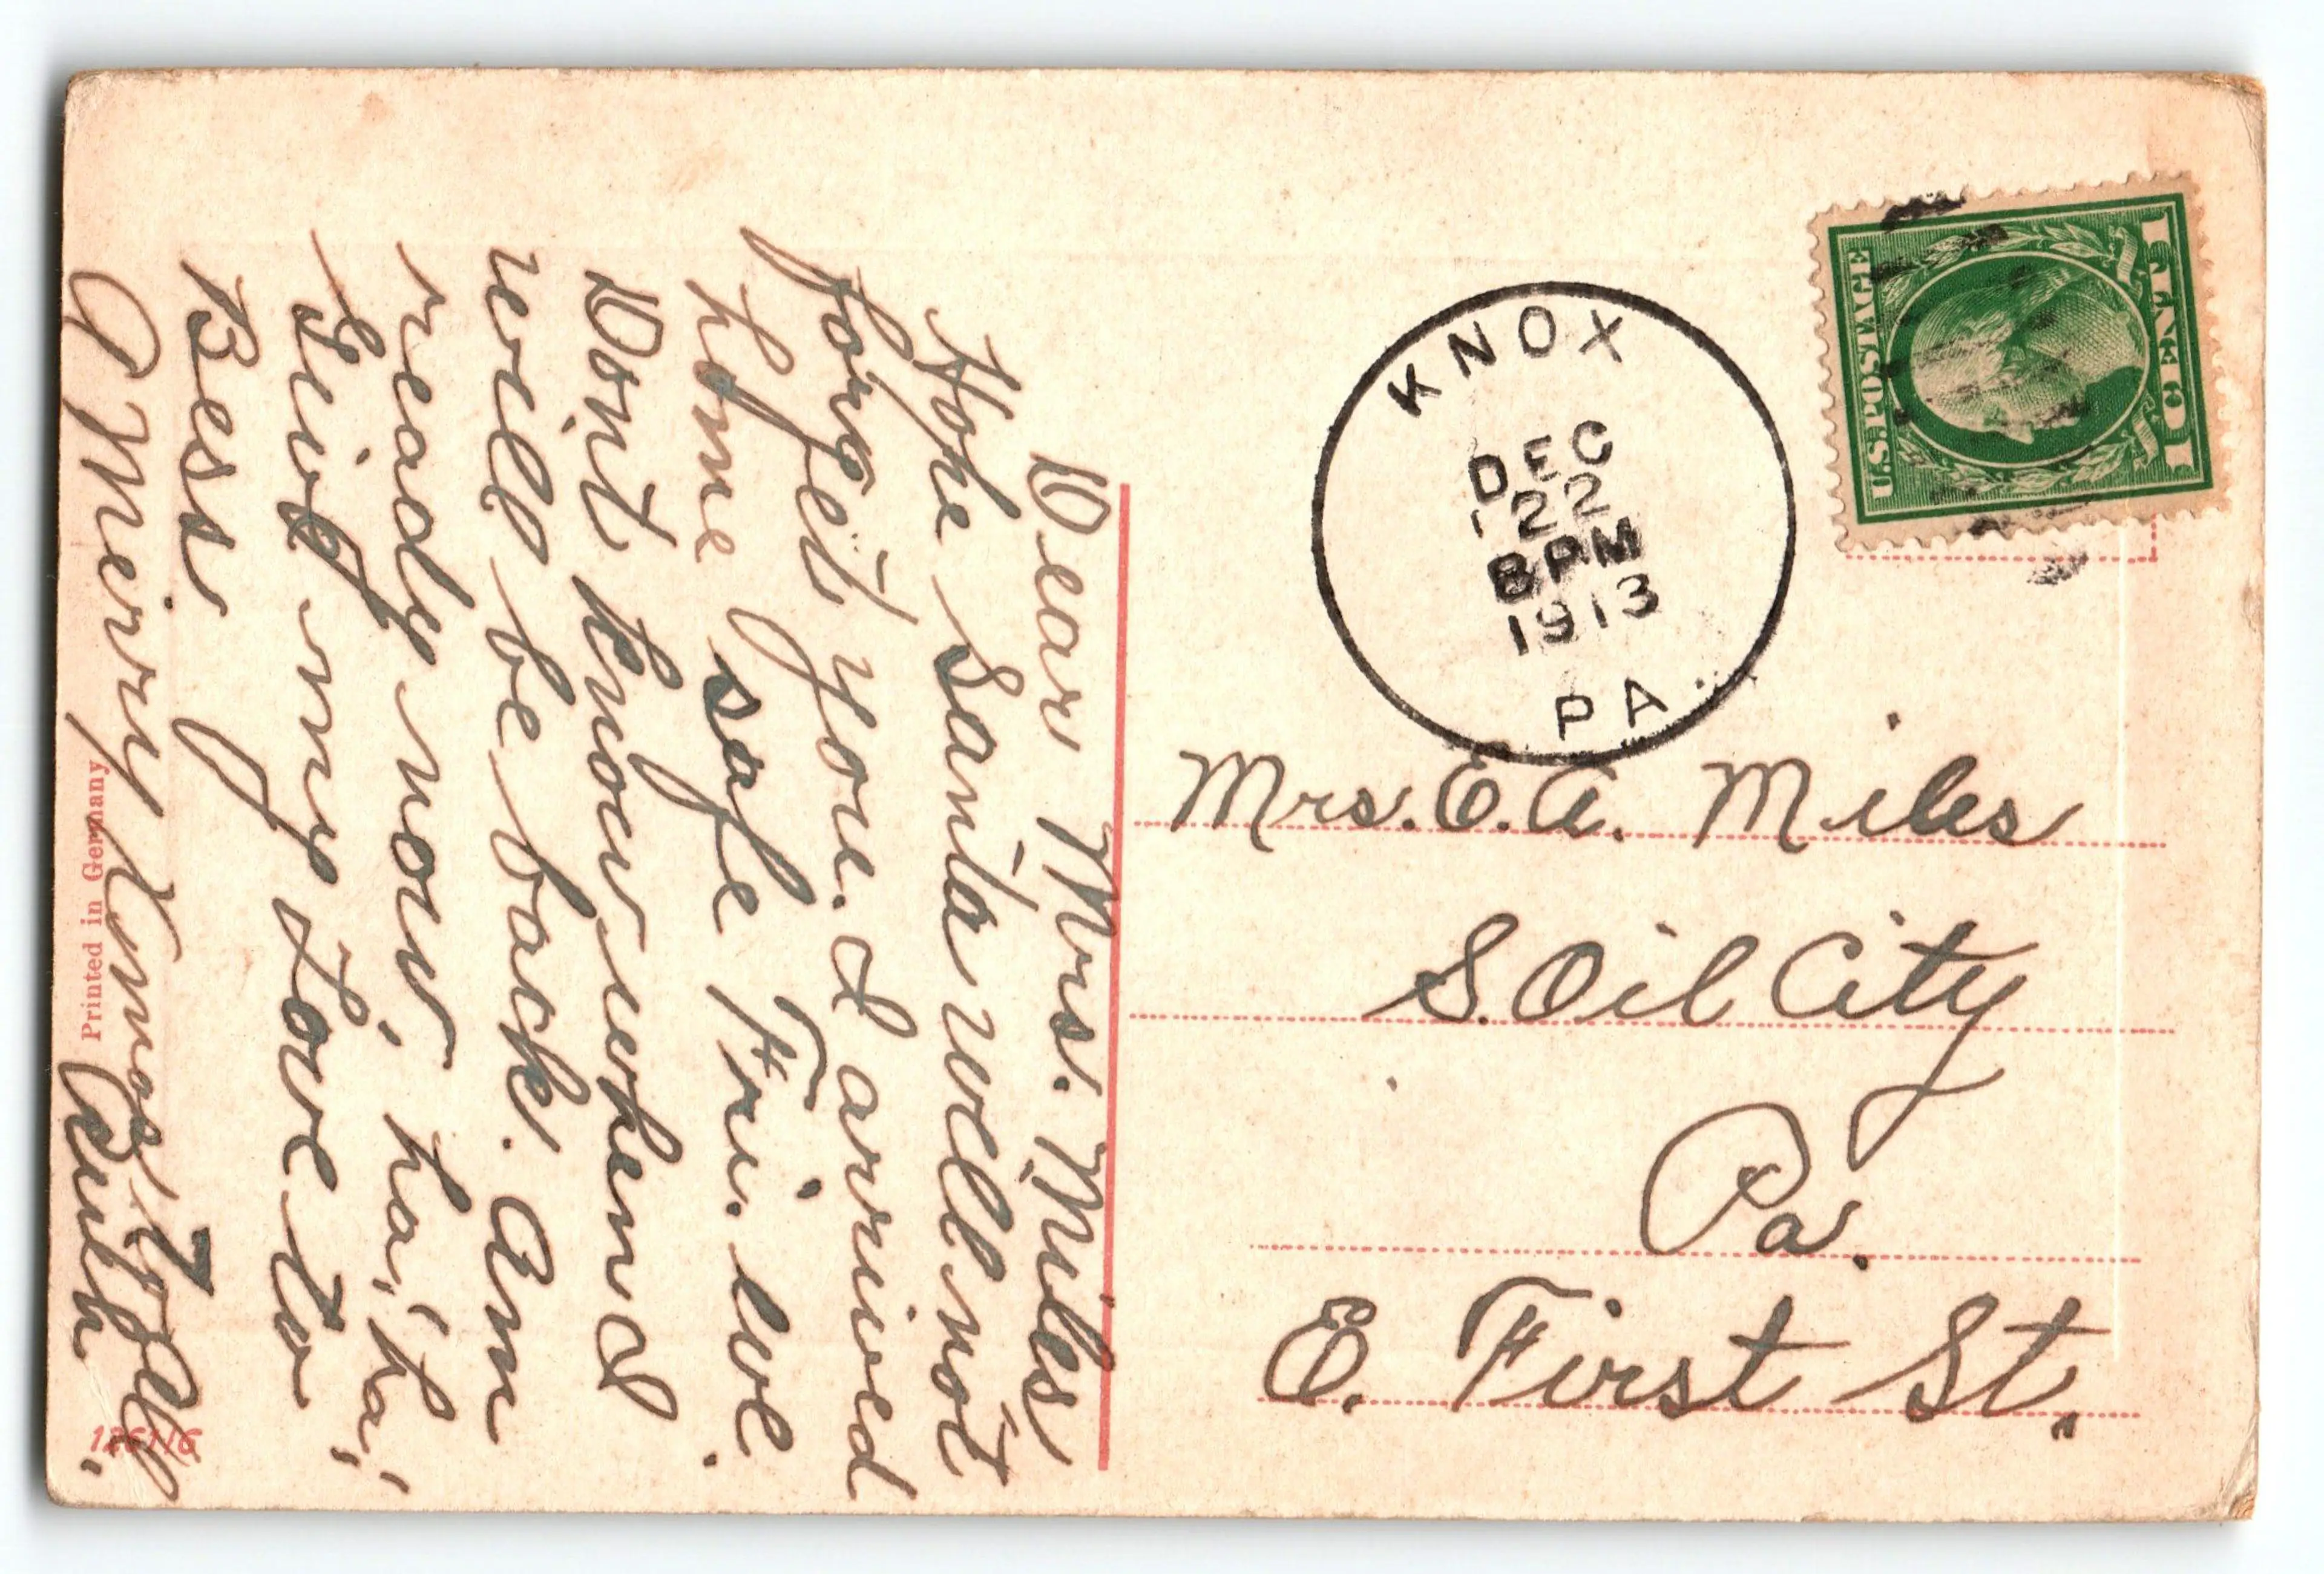 Dear Mrs. Miles
Hope Santa will not
forget you. I arrived
home safe Fri. eve.
Don't know when I
will be back. Am
ready now, ha! ha!
Give my Love to
Bess
A Merry Xmas to all.
Ruth.
Printed in Germany
KNOX
DEC
22
8PM
1913
PA.
U.S. POSTAGE
1 CENT 1
Mrs. E. A. Miles
S. Oil City
Pa.
E. First St.